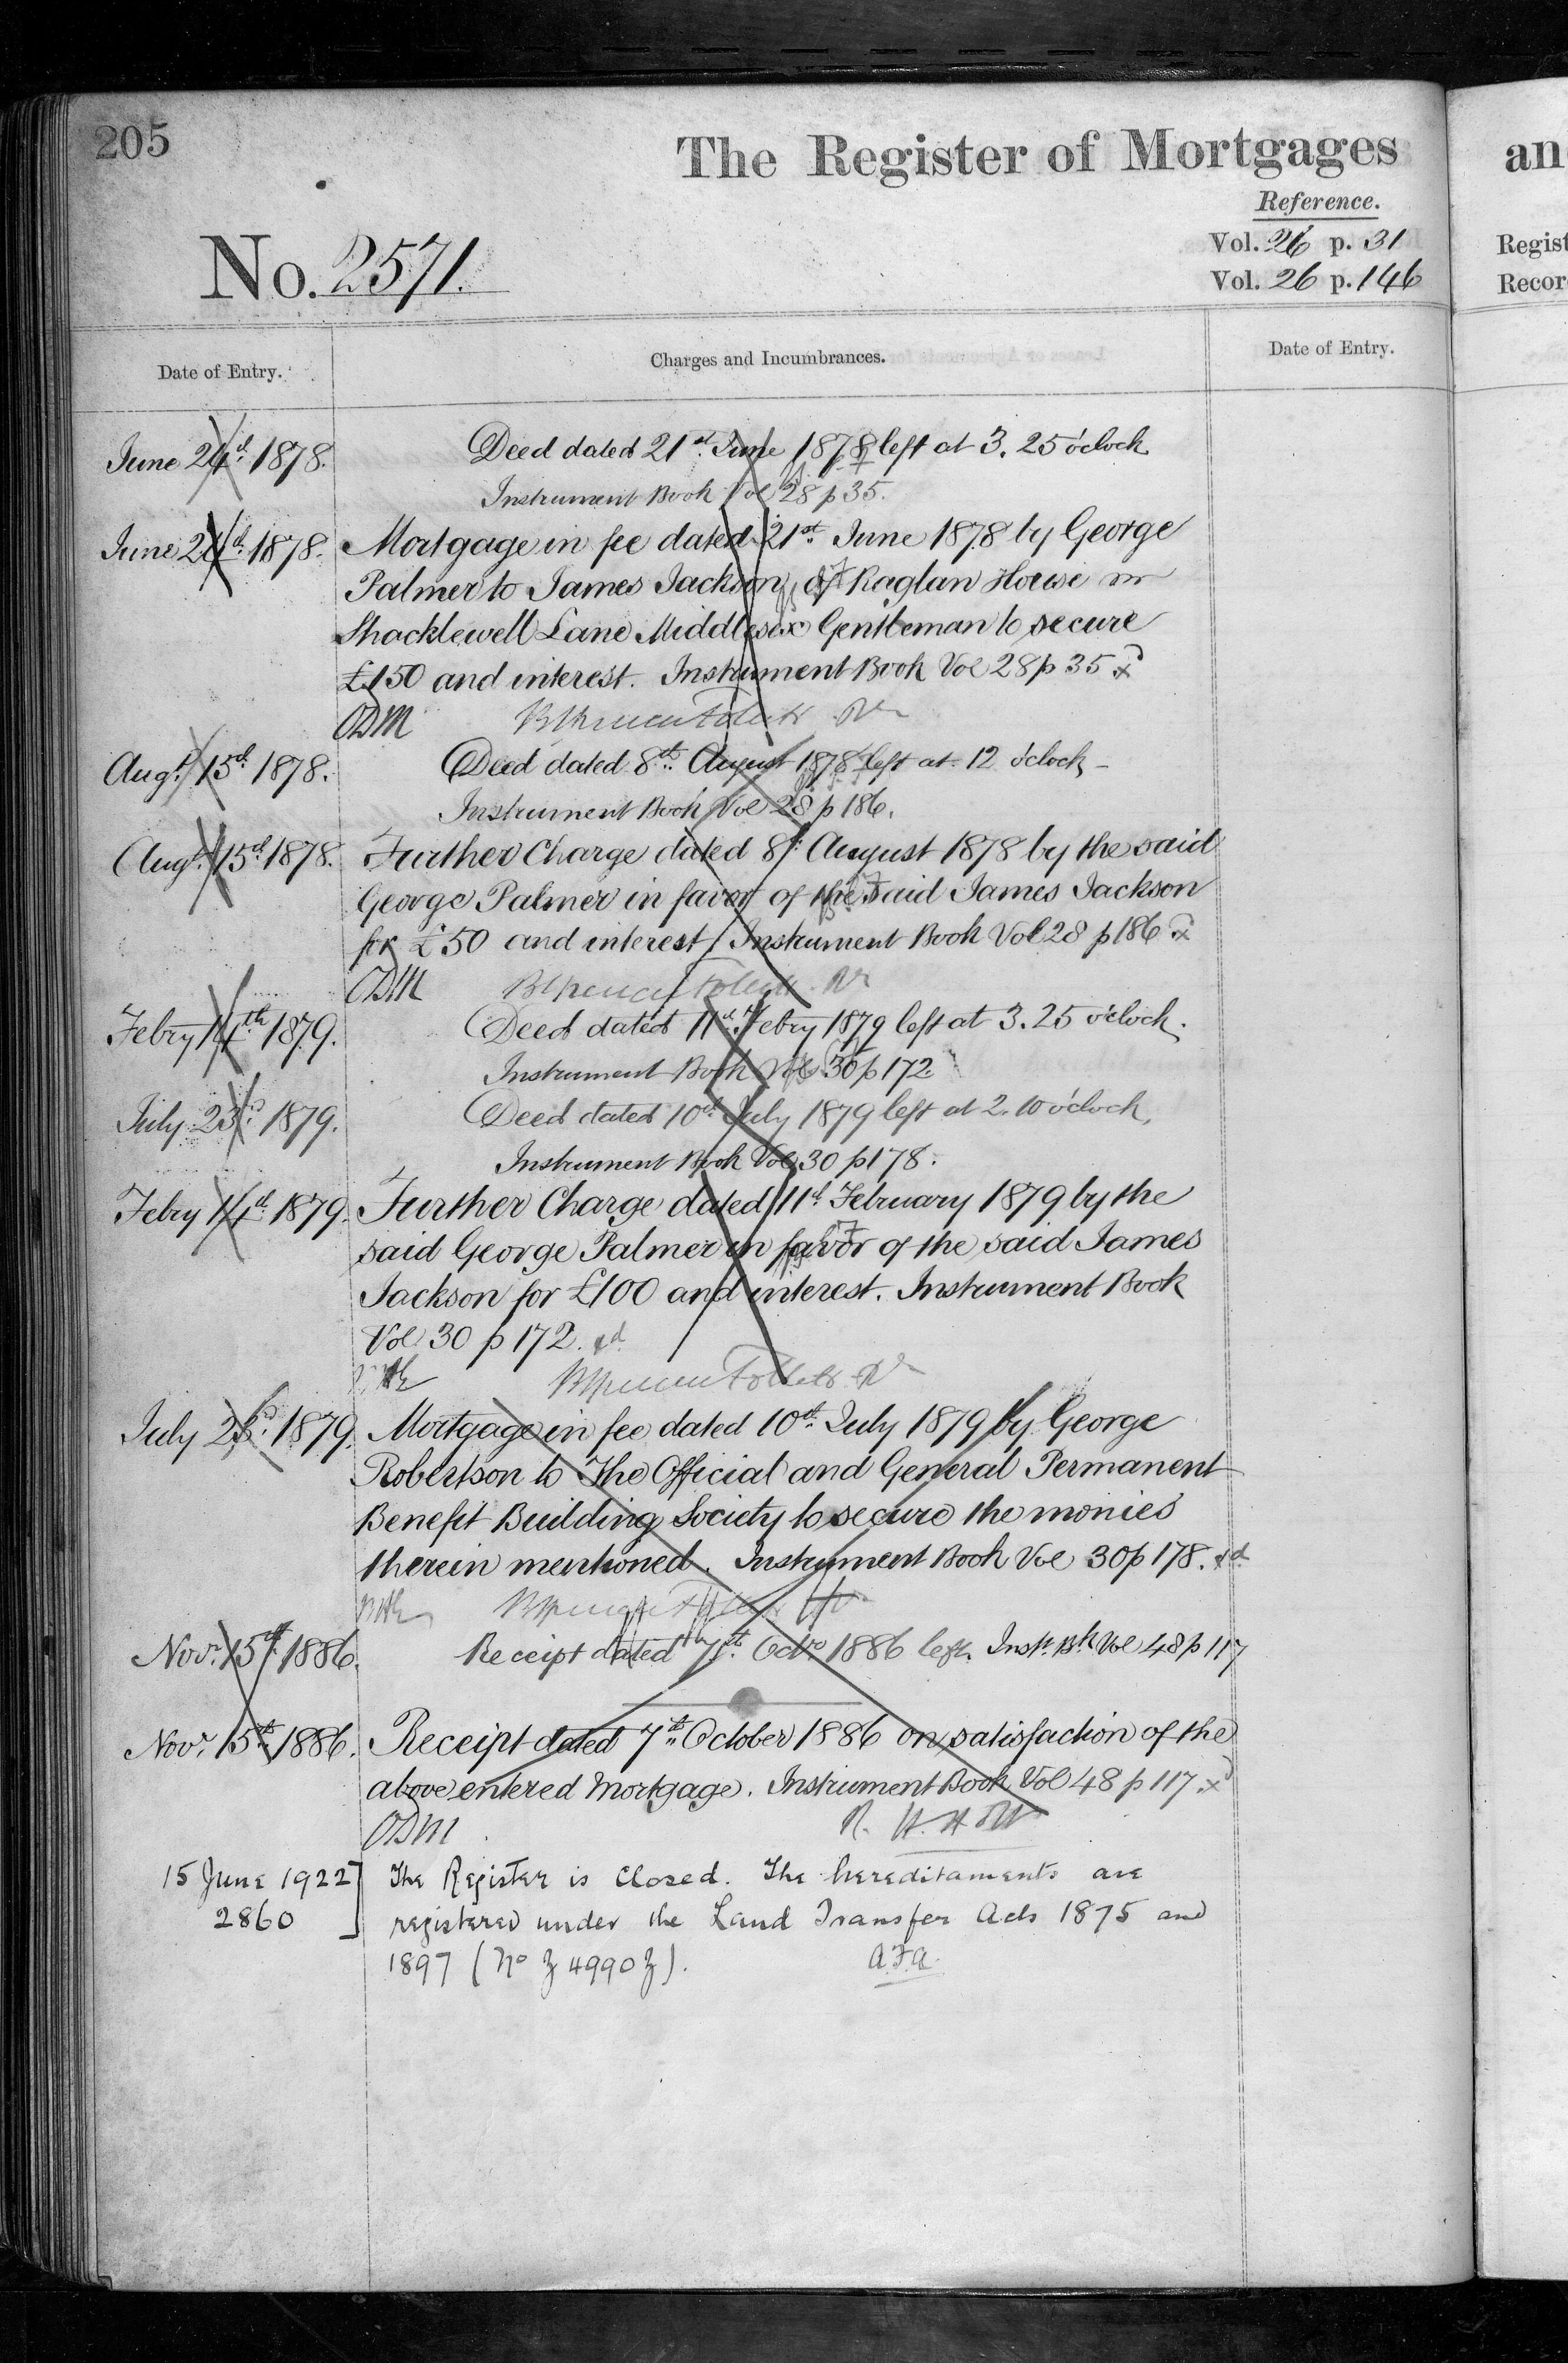 205
The Register of Mortgages
an
Reference.
No. 2571.
Vol. 26 p. 31
Vol. 26 p. 146
Regist
Recor
Date of Entry.
Charges and Incumbrances.
Date of Entry.
June 24th 1878. Deed dated 21st June 1878 left at 3.25 o'clock
Instrument Book Vol 28 p 35.
June 24th 1878. Mortgage in fee dated 21st June 1878 by George
Palmer to James Jackson of Raglan House
Shacklewell Lane Middlesex Gentleman to secure
£150 and interest. Instrument Book Vol 28 p 35 xd
ODM
Augt. 15th 1878. Deed dated 8th August 1878 left at 12 o'clock
Instrument Book Vol 28 p 186.
Augt. 15th 1878. Further Charge dated 8th August 1878 by the said
George Palmer in favor of the said James Jackson
for £50 and interest Instrument Book Vol 28 p 186 xd
ODM
Febry 14th 1879. Deed dated 11th Febry 1879 left at 3.25 o'clock.
Instrument Book Vol 30 p 172.
July 23d 1879. Deed dated 10th July 1879 left at 2.10 o'clock,
Instrument Book Vol 30 p 178.
Febry 14th 1879. Further Charge dated 11th February 1879 by the
said George Palmer in favor of the said James
Jackson for £100 and interest. Instrument Book
Vol 30 p 172. xd
July 23d 1879. Mortgage in fee dated 10th July 1879 by George
Robertson to The Official and General Permanent
Benefit Building Society to secure the monies
therein mentioned. Instrument Book Vol 30 p 178. xd
Novr. 15th 1886. Receipt dated 7th Octr 1886 left. Inst. Bk Vol 48 p 117
Novr. 15th 1886. Receipt dated 7th October 1886 on satisfaction of the
above entered Mortgage. Instrument Book Vol 48 p 117 xd
ODM R. H. Holt
15 June 1922 The Register is Closed. The hereditaments are
2860 registered under the Land Transfer Acts 1875 and
1897 (No Z 4990 Z). A.F.A.